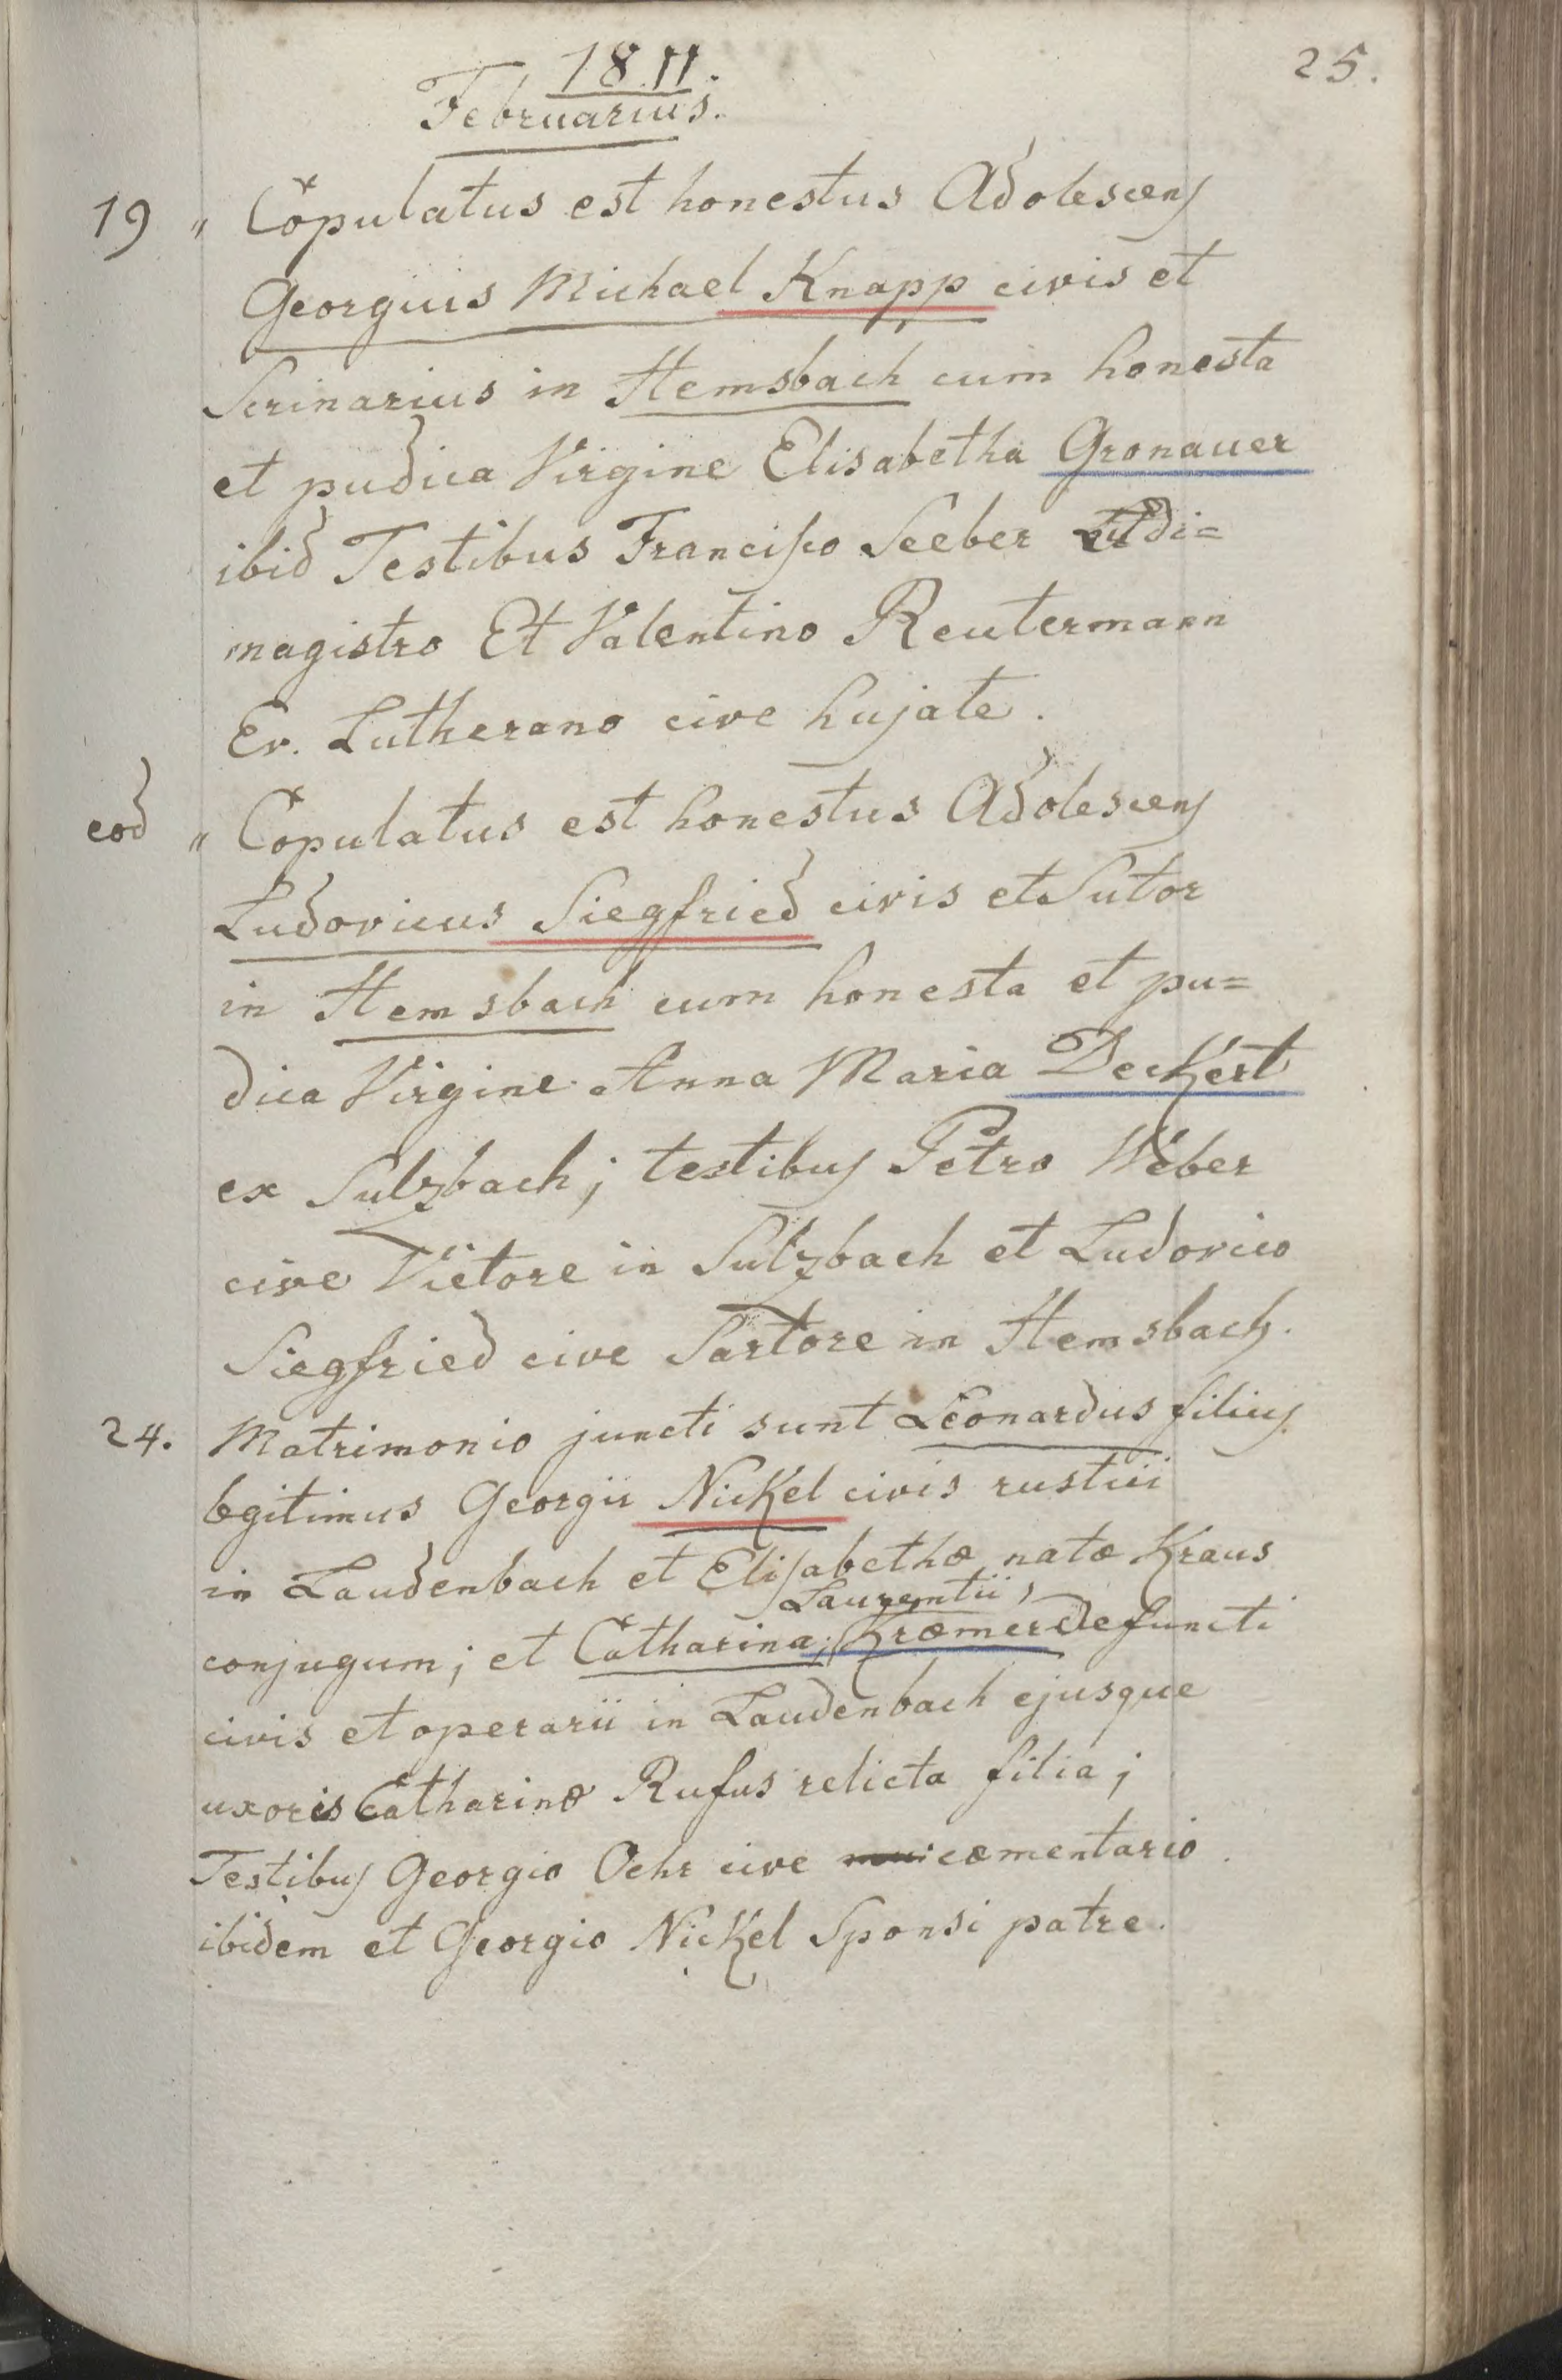 25.
1811.
Februarius.
19 " Copulatus est honestus Adolescens
Georgius Michael Knapp civis et
Scrinarius in Hemsbach cum honesta
et pudica Virgine Elisabetha Gronauer
ibid Testibus Francisco Seeber Ludi=
magistro Et Valentino Reutermann
Ev. Lutherano cive hujate.
eod " Copulatus est honestus Adolescens
Ludovicus Siegfried civis et Sutor
in Hemsbach cum honesta et pu=
dica Virgine Anna Maria Deckert
ex Sulzbach; testibus Petro Weber
cive Vietore in Sulzbach et Ludovico
Siegfried cive Sartore in Hemsbach.
24. Matrimonio juncti sunt Leonardus filius
legitimus Georgii Nickel civis rustici
in Laudenbach et Elisabethæ natæ Kraus
Laurentii,
conjugum; et Catharina, Kræmer defuncti
civis et operarii in Laudenbach ejusque
uxoris Catharinæ Rufus relicta filia;
Testibus Georgio Oehr cive cæmentario
ibidem et Georgio Nickel Sponsi patre.